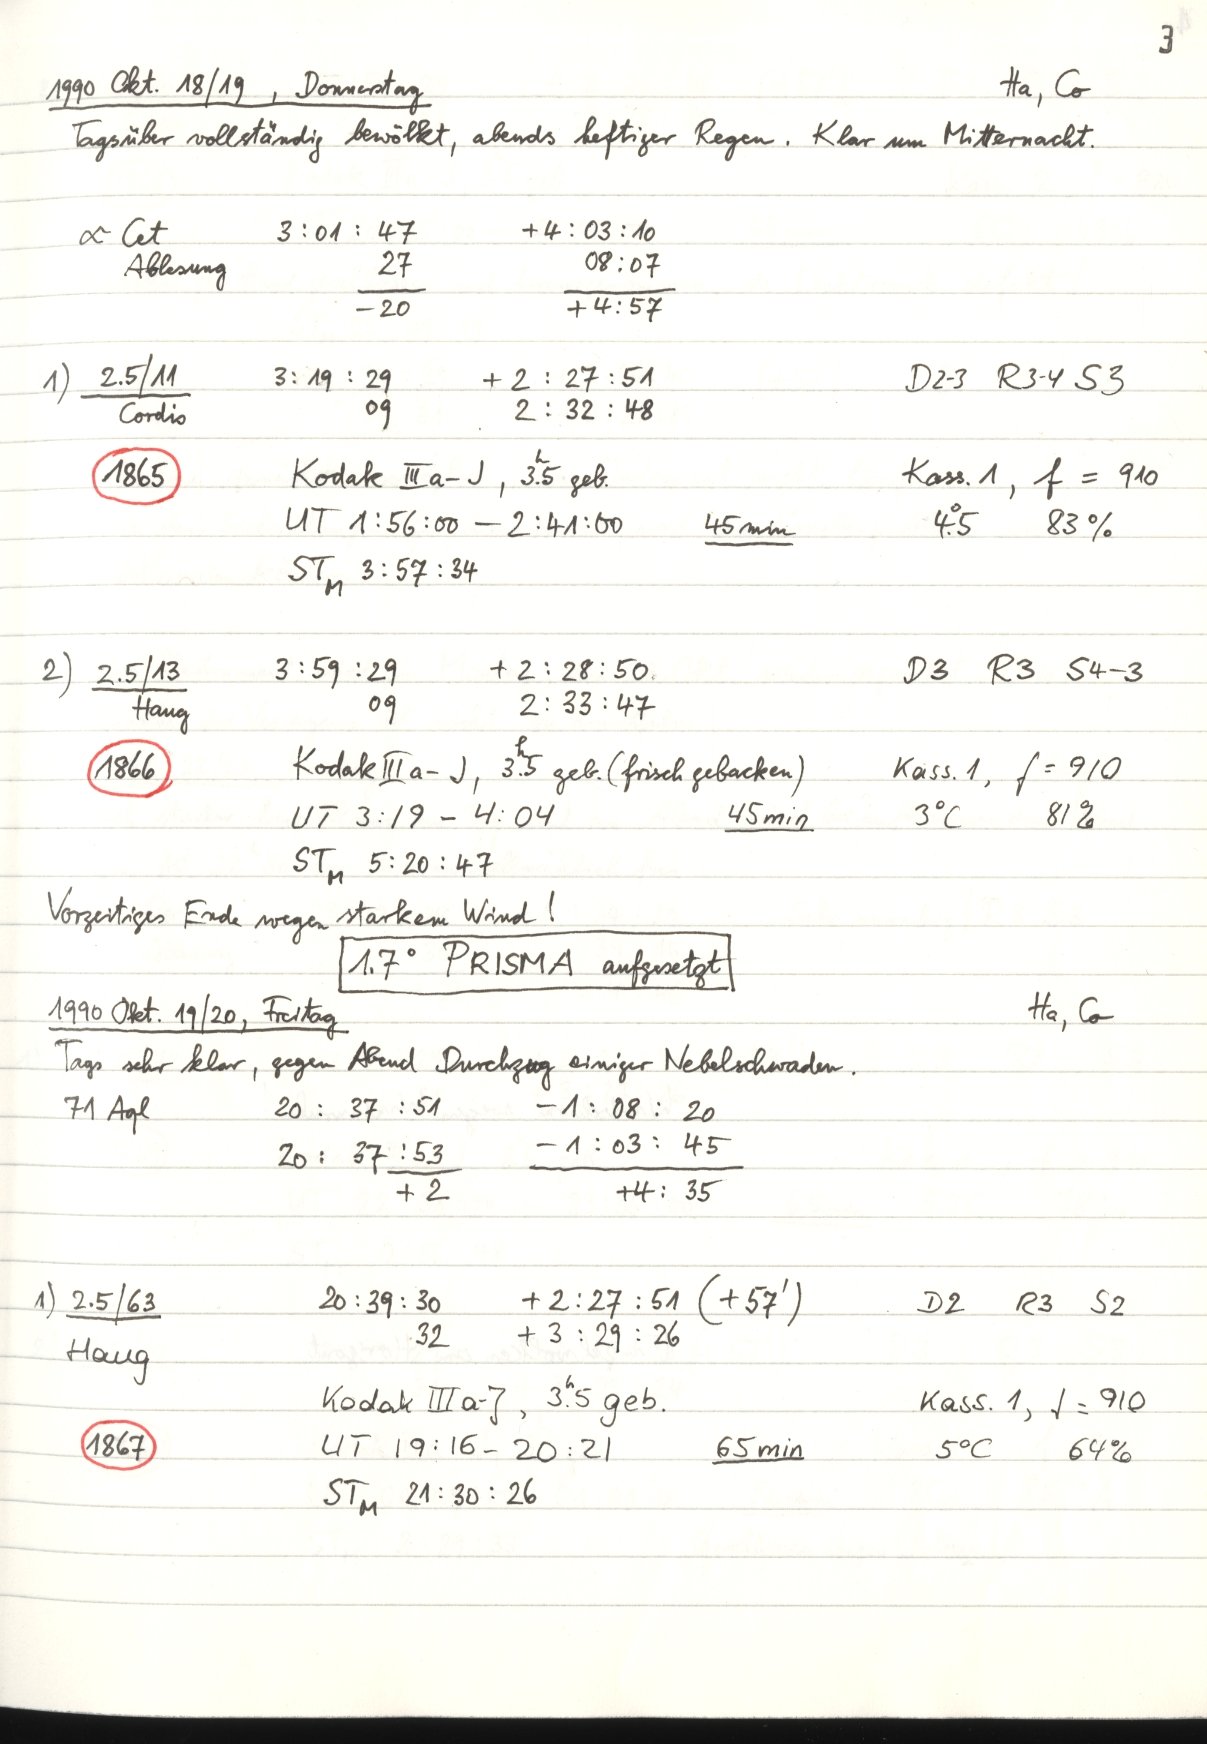 3
1990 Okt. 18/19, Donnerstag Ha, Co
Tagsüber vollständig bewölkt, abends heftiger Regen. Klar um Mitternacht.
α Cet 3:01:47 +4:03:10
Ablesung 27 08:07
-20 +4:57
1) 2.5/11 3:19:29 +2:27:51 D2-3 R3-4 S3
Cordis 09 2:32:48
1865 Kodak IIIa-J, 3ʰ.5 geb. Kass. 1, f = 910
UT 1:56:00 - 2:41:00 45min 4°.5 83%
STM 3:57:34
2) 2.5/13 3:59:29 +2:28:50 D3 R3 S4-3
Haug 09 2:33:47
1866 Kodak IIIa-J, 3ʰ.5 geb. (frisch gebacken) Kass. 1, f = 910
UT 3:19 - 4:04 45min 3°C 81%
STM 5:20:47
Vorzeitiges Ende wegen starkem Wind!
1.7° PRISMA aufgesetzt
1990 Okt. 19/20, Freitag Ha, Co
Tags sehr klar, gegen Abend Durchzug einiger Nebelschwaden.
71 Aql 20:37:51 -1:08:20
20:37:53 -1:03:45
+2 +4:35
1) 2.5/63 20:39:30 +2:27:51 (+57') D2 R3 S2
Haug 32 +3:29:26
Kodak IIIa-J, 3ʰ.5 geb. Kass. 1, f = 910
1867 UT 19:16 - 20:21 65min 5°C 64%
STM 21:30:26